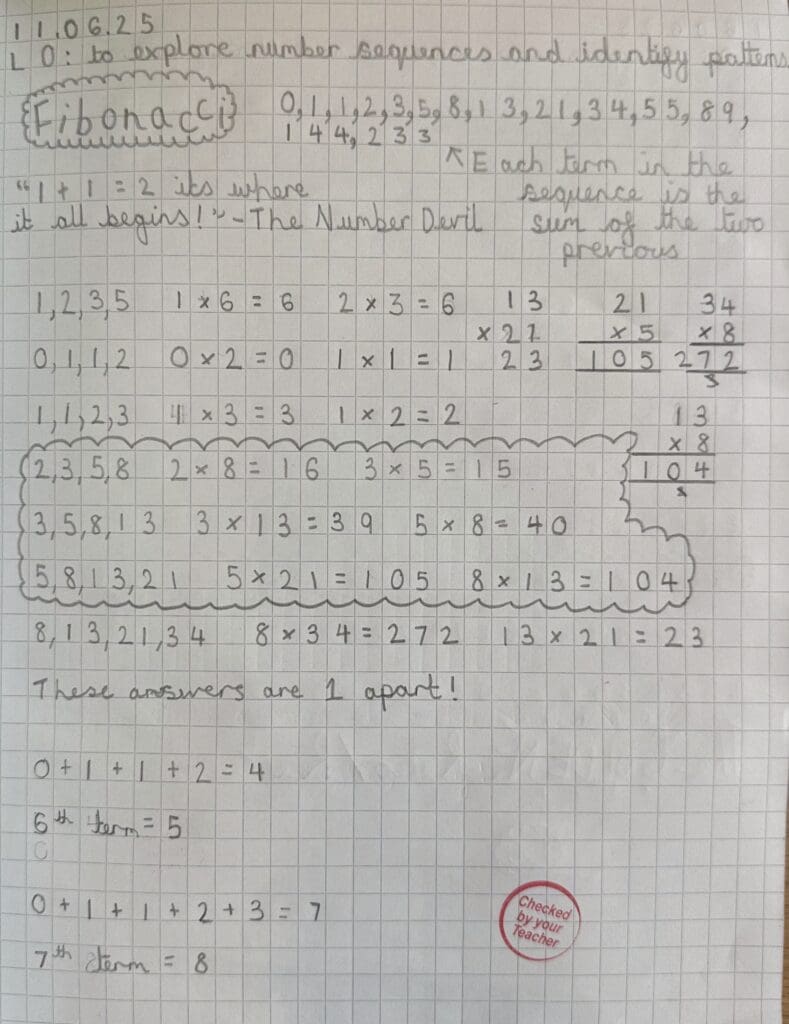 11.06.25
LO: to explore number sequences and identify patterns
Fibonacci 0,1,1,2,3,5,8,13,21,34,55,89,
144,233
↖Each term in the
sequence is the
sum of the two
previous
"1+1=2 its where
it all begins!"-The Number Devil
1,2,3,5 1×6=6 2×3=6
0,1,1,2 0×2=0 1×1=1
1,1,2,3 1×3=3 1×2=2
13
×21
23
21
×5
105
34
×8
272
3
13
×8
104
2,3,5,8 2×8=16 3×5=15
3,5,8,13 3×13=39 5×8=40
5,8,13,21 5×21=105 8×13=104
8,13,21,34 8×34=272 13×21=23
These answers are 1 apart!
0+1+1+2=4
6th term=5
0+1+1+2+3=7
7th term=8
Checked
by your
Teacher